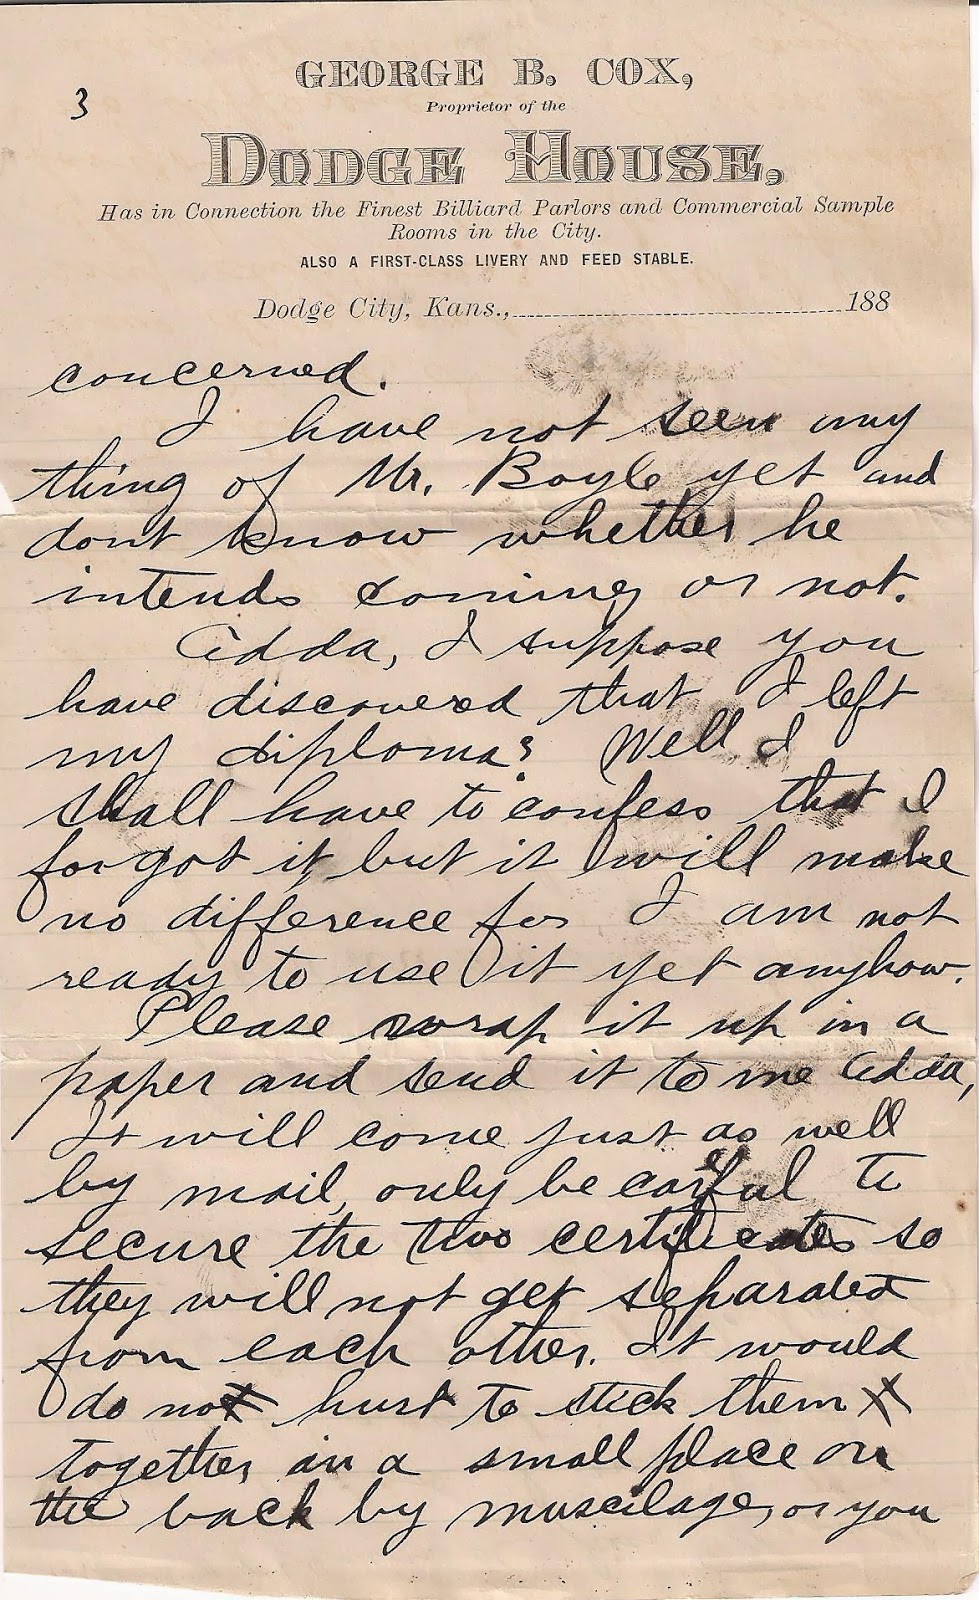 3
GEORGE B. COX,
Proprietor of the
DODGE HOUSE,
Has in Connection the Finest Billiard Parlors and Commercial Sample
Rooms in the City.
ALSO A FIRST-CLASS LIVERY AND FEED STABLE.
Dodge City, Kans., 188
concerned.
I have not seen any
thing of Mr. Boyle yet and
dont know whether he
intends coming or not.
Adda, I suppose you
have discovered that I left
my diploma? Well I
shall have to confess that I
forgot it, but it will make
no difference for I am not
ready to use it yet anyhow.
Please wrap it up in a
paper and send it to me Adda,
It will come just as well
by mail, only be careful to
secure the two certificates so
they will not get separated
from each other. It would
do no hurt to stick them
together in a small place on
the back by muscilage, or you